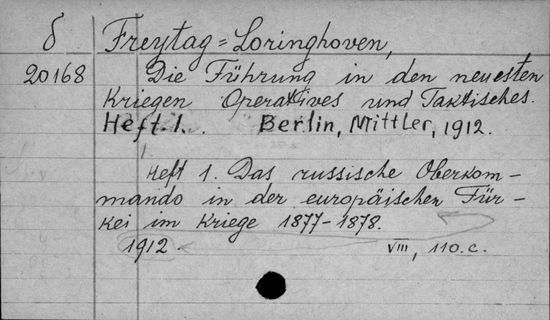 δ Freytag=Loringhoven,
20168 Die Führung in den neuesten
Kriegen Operatives und Taktisches.
Heft.1. Berlin, Mittler, 1912.
Heft 1. Das russische Oberkom–
mando in der europäischen Tür–
kei im Kriege 1877–1878.
1912. VIII, 110.c.